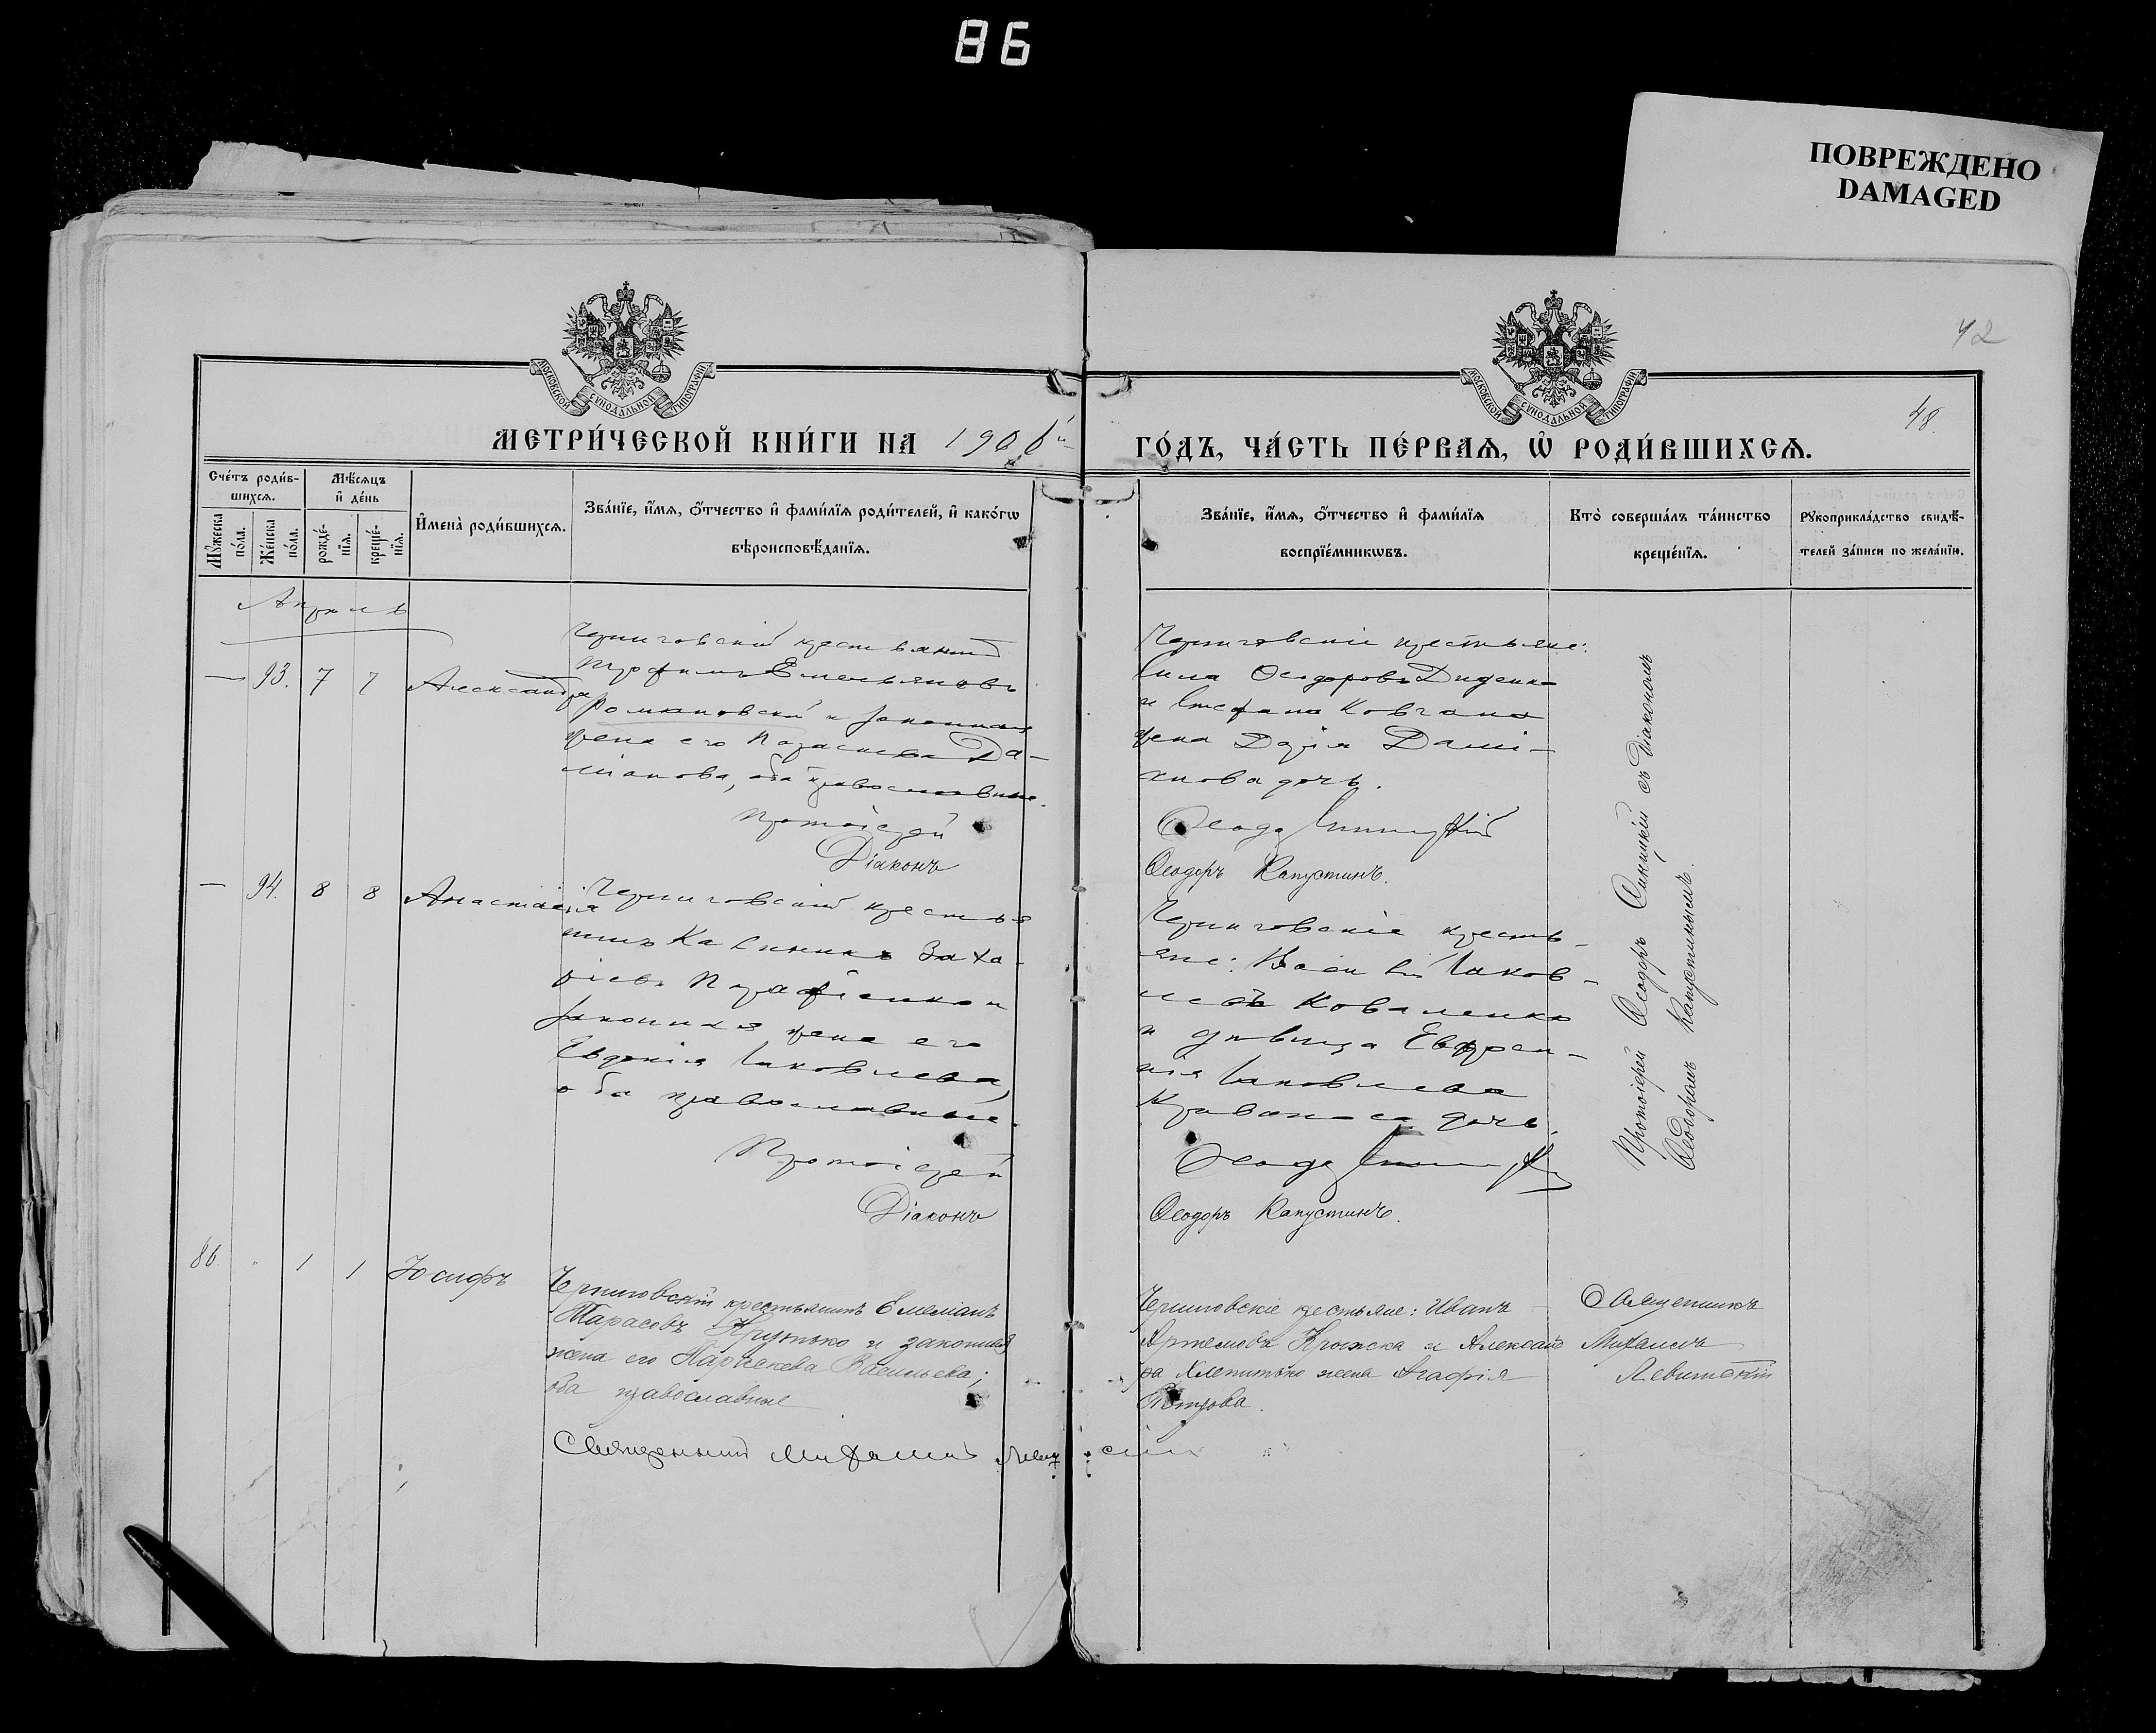 86
ПОВРЕЖДЕНО
DAMAGED
42
48.
МОСКОВСКОЙ СѴНОДАЛЬНОЙ ТИПОГРАФІИ
МОСКОВСКОЙ СѴНОДАЛЬНОЙ ТИПОГРАФІИ
МЕТРИ́ЧЕСКОЙ КНИ́ГИ НА 190
ГО́ДЪ, ЧА́СТЬ ПЕ́РВАѦ, Ѡ҆ РОДИ́ВШИХСѦ.
Сче́тъ роди́в-
шихсѧ.
Мѣ́сѧцъ
и҆ де́нь
Мꙋ́жеска
по́ла.
Же́нска
по́ла.
рожде́-
нїѧ.
креще́-
нїѧ.
И҆мена̀ роди́вшихсѧ.
Зва́нїе, и҆́мѧ, ѻ҆́тчество и҆ фами́лїѧ роди́телей, и҆ како́гѡ
вѣроисповѣ́данїѧ.
Зва́нїе, и҆́мѧ, ѻ҆́тчество и҆ фами́лїѧ
воспрїе́мникѡвъ.
Кто̀ соверша́лъ та́инство
креще́нїѧ.
Рꙋкоприкла́дство свидѣ́-
телей за́писи по жела́нїю.
Апрель
— 93. 7 7 Александра
Черниговскій крестьянинъ
Трофимъ Емельяновъ
Романовскій и законная
жена его Параскева Да-
міанова, оба православные.
Протоіерей
Діаконъ
Черниговскіе крестьяне:
Сила Ѳеодоровъ Диденко
и Стефана Ковгана
жена Дарія Дамі-
анова дочь.
Ѳеодоръ Синицкій
Ѳеодоръ Капустинъ.
— 94. 8 8 Анастасія
Черниговскій крестья
нинъ Калиникъ Заха-
ріевъ и
законная жена его
Евдокія Іаковлева,
оба православные.
Протоіерей
Діаконъ
Черниговскіе кресть-
яне: Василій Іаков-
левъ Коваленко
и дѣвица Евфро-
нія Іаковлева
дочь.
Ѳеодоръ Синицкій
Ѳеодоръ Капустинъ.
Протоіерей Ѳеодоръ Синицкій съ Діакономъ
Ѳеодоромъ Капустинымъ.
86. " 1 1 Іосифъ
Черниговскій крестьянинъ Емеліанъ
Тарасовъ и законная
жена его Параскева Васильева;
оба православные
Священникъ Михаилъ
Черниговскіе крестьяне: Иванъ
Артемовъ и Александ
ра жена Агафія
Петрова.
Священникъ
Михаилъ
Левитскій